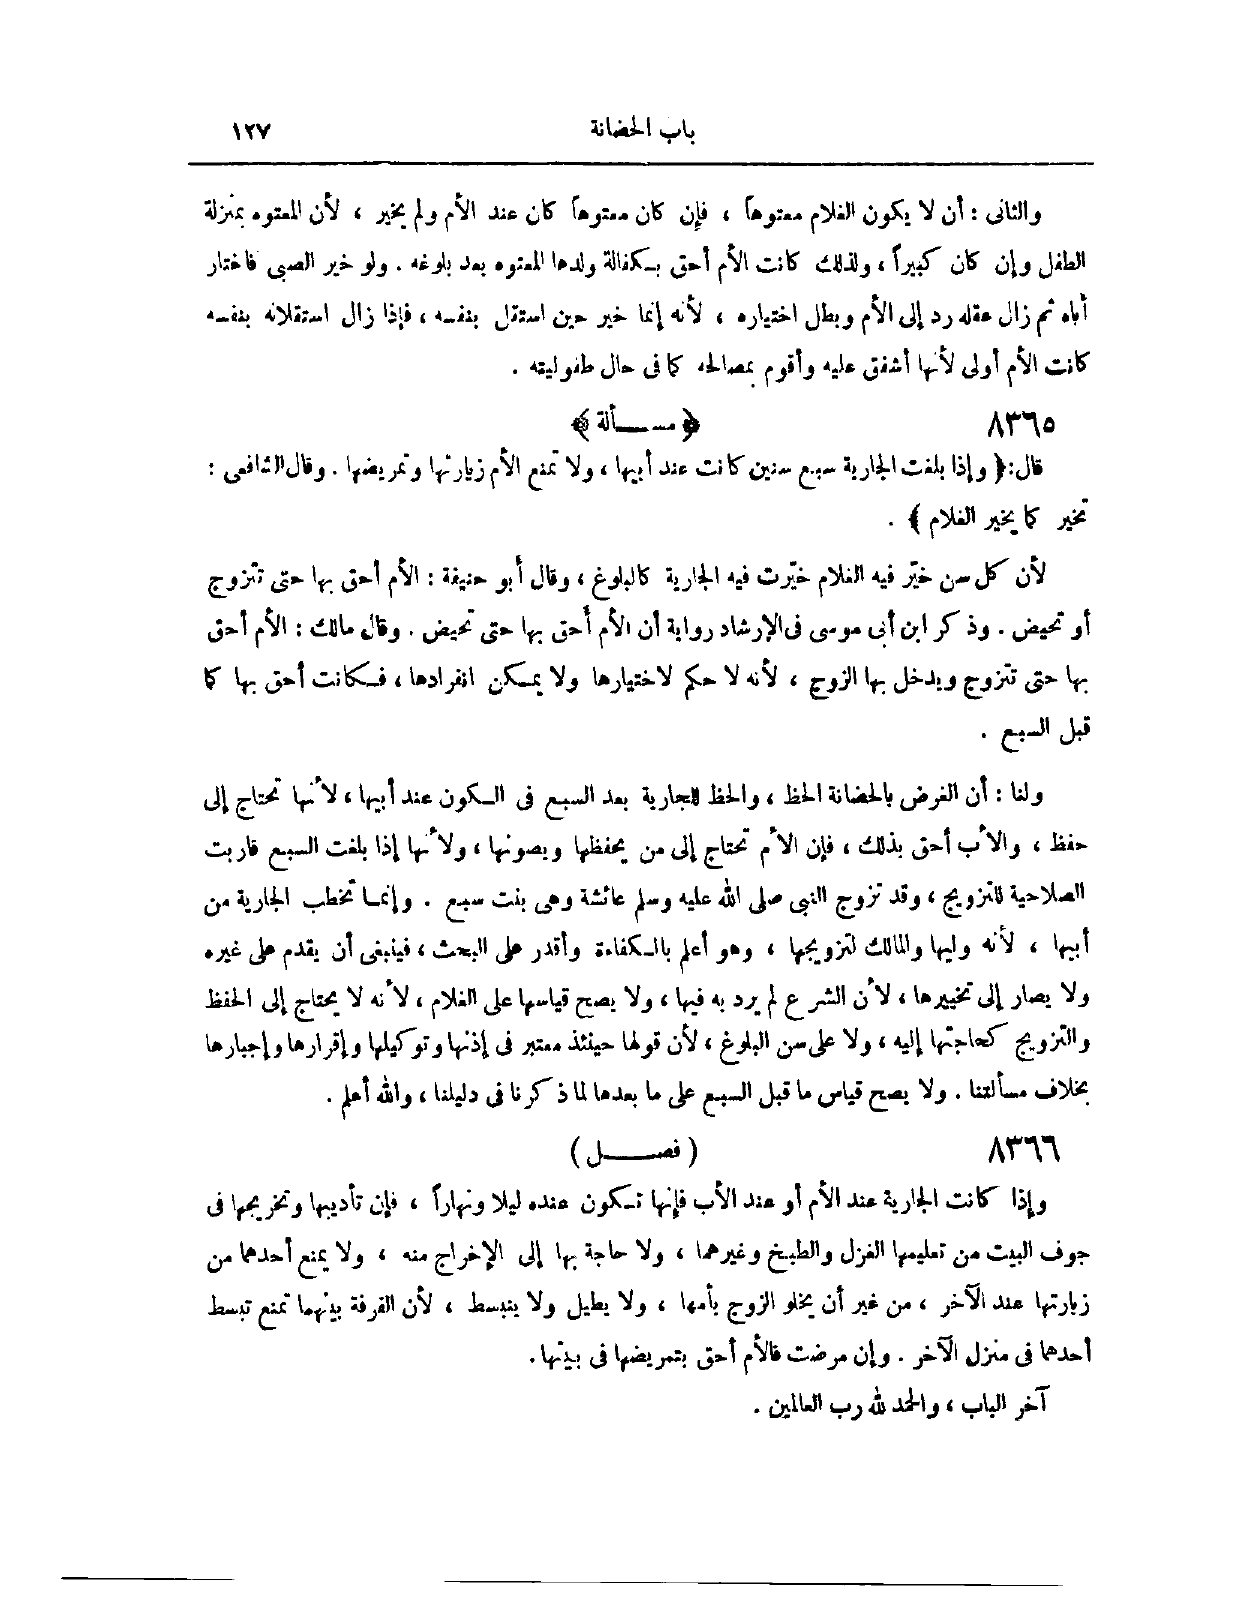 باب الحضانة ١٢٧
والثانى : أن لا يكون الغلام معتوهاً ، فإن كان معتوهاً كان عند الأم ولم يخير ، لأن المعتوه بمنزلة
الطفل وإن كان كبيراً ، ولذلك كانت الأم أحق بكفالة ولدها المعتوه بعد بلوغه . ولو خير الصبى فاختار
أباه ثم زال عقله رد إلى الأم وبطل اختياره ، لأنه إنما خير حين استقل بنفسه ، فإذا زال استقلاله بنفسه
كانت الأم أولى لأنها أشفق عليه وأقوم بمصالحه كما فى حال طفوليته .
٨٣٦٥ ﴿ مسألة ﴾
قال: ﴿ وإذا بلغت الجارية سبع سنين كانت عند أبيها ، ولا تمنع الأم زيارتها وتمريضها . وقال الشافعى :
تخير كما يخير الغلام ﴾ .
لأن كل سن خيّر فيه الغلام خيّرت فيه الجارية كالبلوغ ، وقال أبو حنيفة : الأم أحق بها حتى تتزوج
أو تحيض . وذكر ابن أبى موسى فى الإرشاد رواية أن الأم أحق بها حتى تحيض . وقال مالك : الأم أحق
بها حتى تتزوج ويدخل بها الزوج ، لأنه لا حكم لاختيارها ولا يمكن انفرادها ، فكانت أحق بها كما
قبل السبع .
ولنا : أن الغرض بالحضانة الحظ ، والحظ للجارية بعد السبع فى الكون عند أبيها ، لأنها تحتاج إلى
حفظ ، والأب أحق بذلك ، فإن الأم تحتاج إلى من يحفظها ويصونها ، ولأنها إذا بلغت السبع قاربت
الصلاحية للتزويج ، وقد تزوج النبى صلى الله عليه وسلم عائشة وهى بنت سبع . وإنما تخطب الجارية من
أبيها ، لأنه وليها والمالك لتزويجها ، وهو أعلم بالكفاءة وأقدر على البحث ، فينبغى أن يقدم على غيره
ولا يصار إلى تخييرها ، لأن الشرع لم يرد به فيها ، ولا يصح قياسها على الغلام ، لأنه لا يحتاج إلى الحفظ
والتزويج كحاجتها إليه ، ولا على سن البلوغ ، لأن قولها حينئذ معتبر فى إذنها وتوكيلها وإقرارها وإجبارها
بخلاف مسألتنا . ولا يصح قياس ما قبل السبع على ما بعدها لما ذكرنا فى دليلنا ، والله أعلم .
٨٣٦٦ ( فصل )
وإذا كانت الجارية عند الأم أو عند الأب فإنها تكون عنده ليلا ونهاراً ، فإن تأديبها وتخريجها فى
جوف البيت من تعليمها الغزل والطبخ وغيرهما ، ولا حاجة بها إلى الإخراج منه ، ولا يمنع أحدهما من
زيارتها عند الآخر ، من غير أن يخلو الزوج بأمها ، ولا يطيل ولا ينبسط ، لأن الفرقة بينهما تمنع تبسط
أحدهما فى منزل الآخر . وإن مرضت فالأم أحق بتمريضها فى بيتها .
آخر الباب ، والحمد لله رب العالمين .